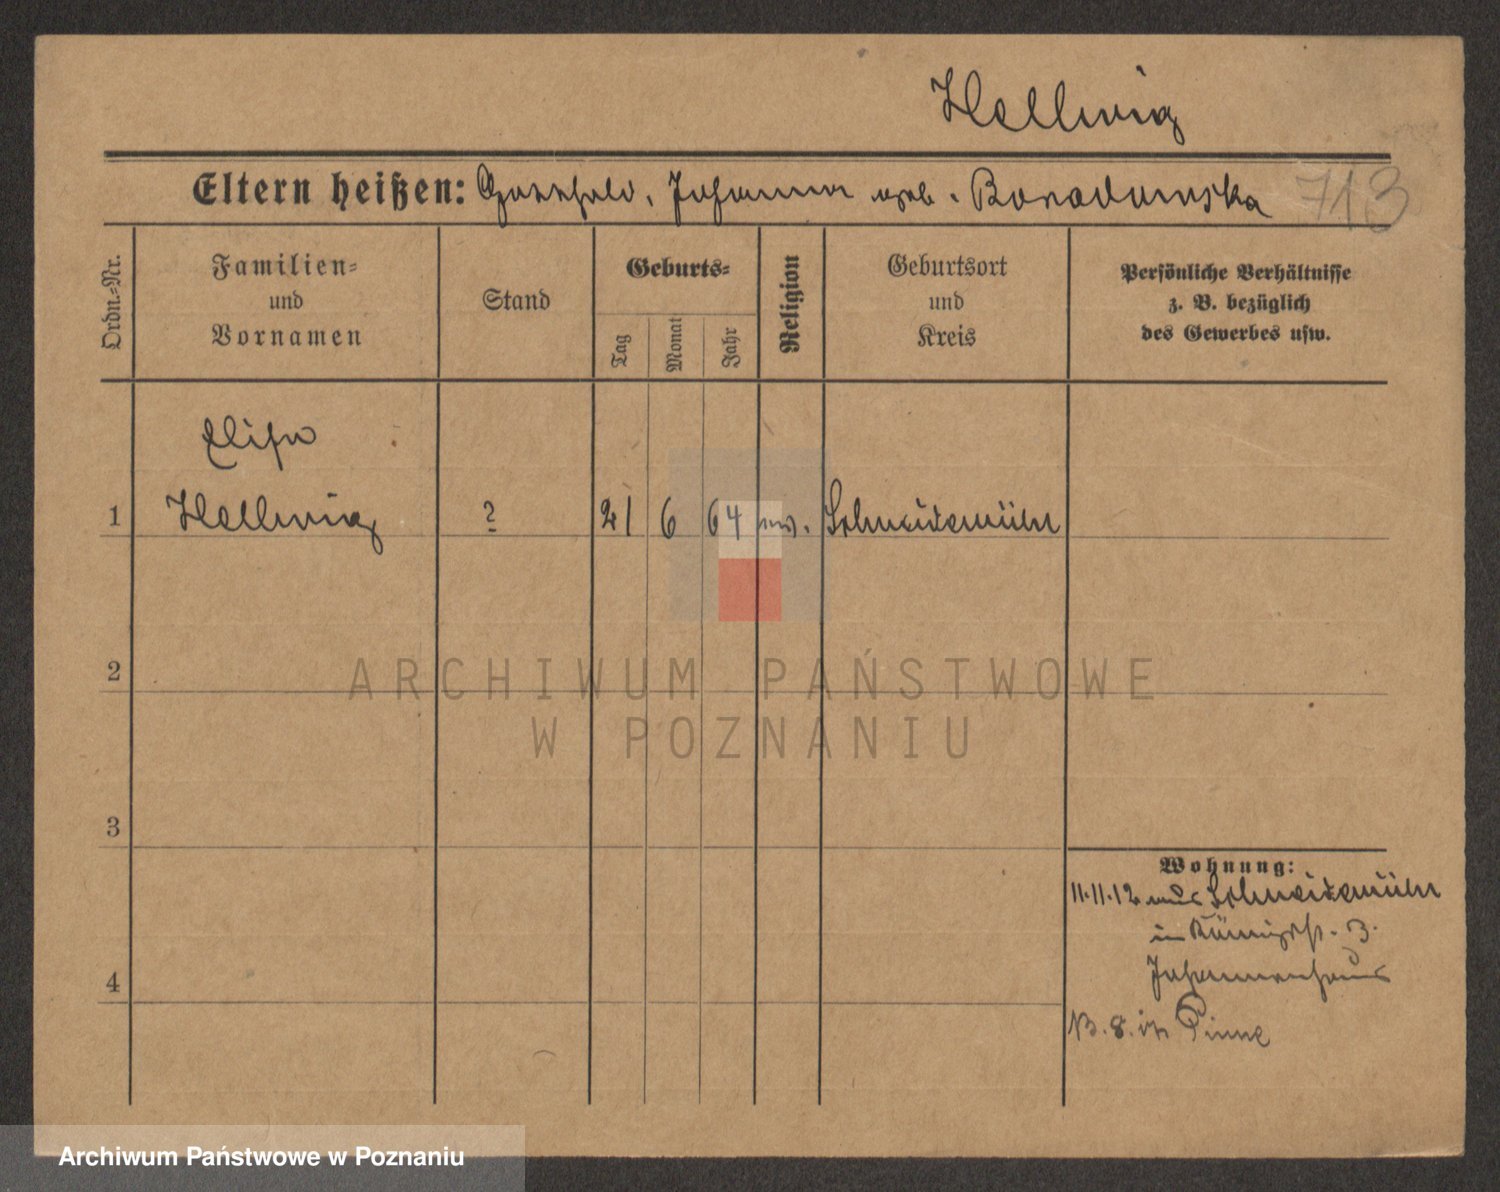 Hellwig
Eltern heißen: Gotthold, Johanna geb. Boradanska 713
Ordn.-Nr.
Familien-
und
Vornamen
Stand
Geburts-
Tag
Monat
Jahr
Religion
Geburtsort
und
Kreis
Persönliche Verhältnisse
z. B. bezüglich
des Gewerbes usw.
Elise
1 Hellwig ? 21 6 64 ev. Schneidemühl
2
ARCHIWUM PAŃSTWOWE
W POZNANIU
3
Wohnung:
11.11.12 aus Schneidemühl
in Königst. 3.
Johannenhaus
8. in Pinne
4
Archiwum Państwowe w Poznaniu